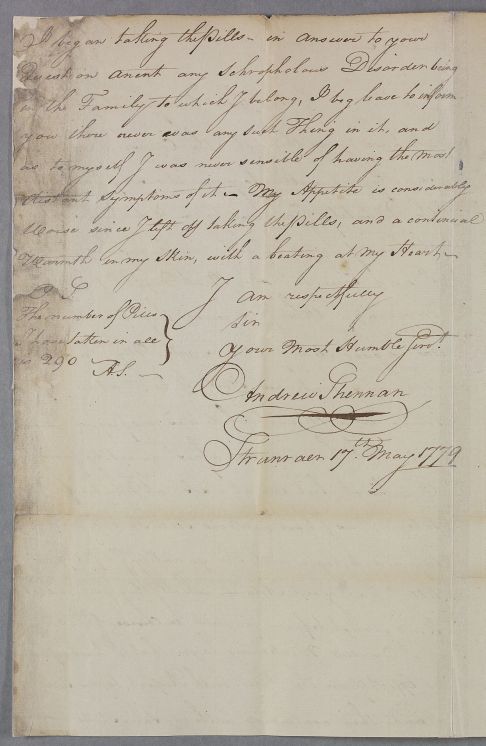 I began taking the Pills – in answer to your
Question anent any Schropholous Disorder being
in the Family to which I belong, I beg leave to inform
you there never was any such Thing in it, and
as to myself I was never sensible of having the most
distant Symptoms of it – My Appetite is considerably
Worse since I left off taking the Pills, and a continual
Warmth in my Skin, with a beating at my Heart, –
I am respectfully
Sir
Your Most Humble Servt.
Andrew Shennan
Stranraer 17th. May 1779
P S
The number of Pills
I have taken in all
is 290
AS. –